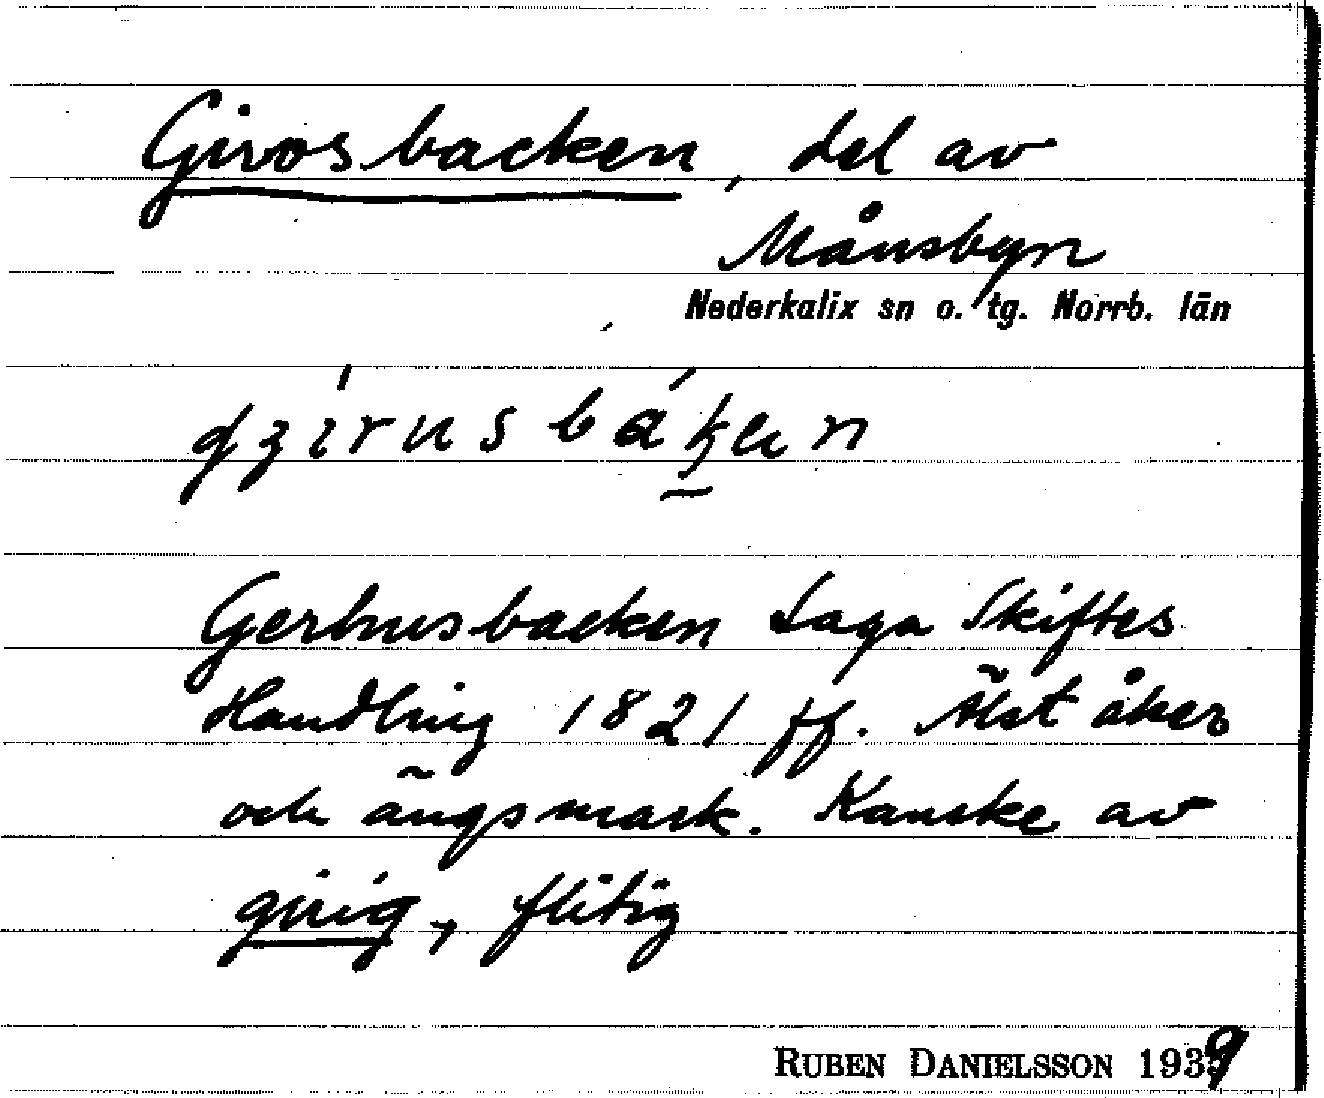 Girosbacken, del av
Månsbyn
Nederkalix sn o. tg. Norrb. län
Gerhusbacken Laga Skiftes
Handling 1821 ff. Älst åker
och ängsmark. Kanske av
girig, flitig
RUBEN DANIELSSON 1939